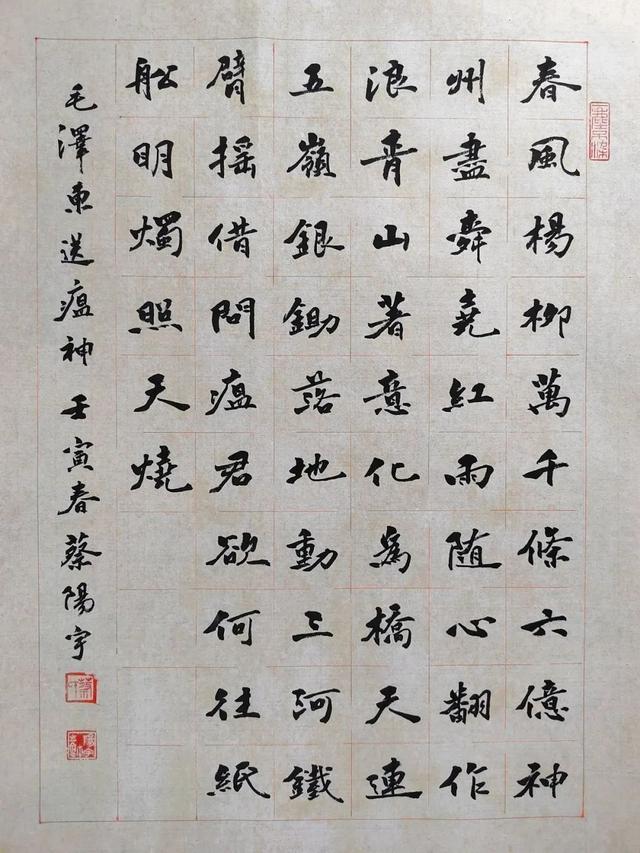 春風楊柳萬千條六億神
州盡舜堯紅雨随心翻作
浪青山著意化爲橋天連
五嶺銀鋤落地動三河鐵
臂摇借問瘟君欲何往紙
船明燭照天燒
毛澤東送瘟神 壬寅春蔡陽宇